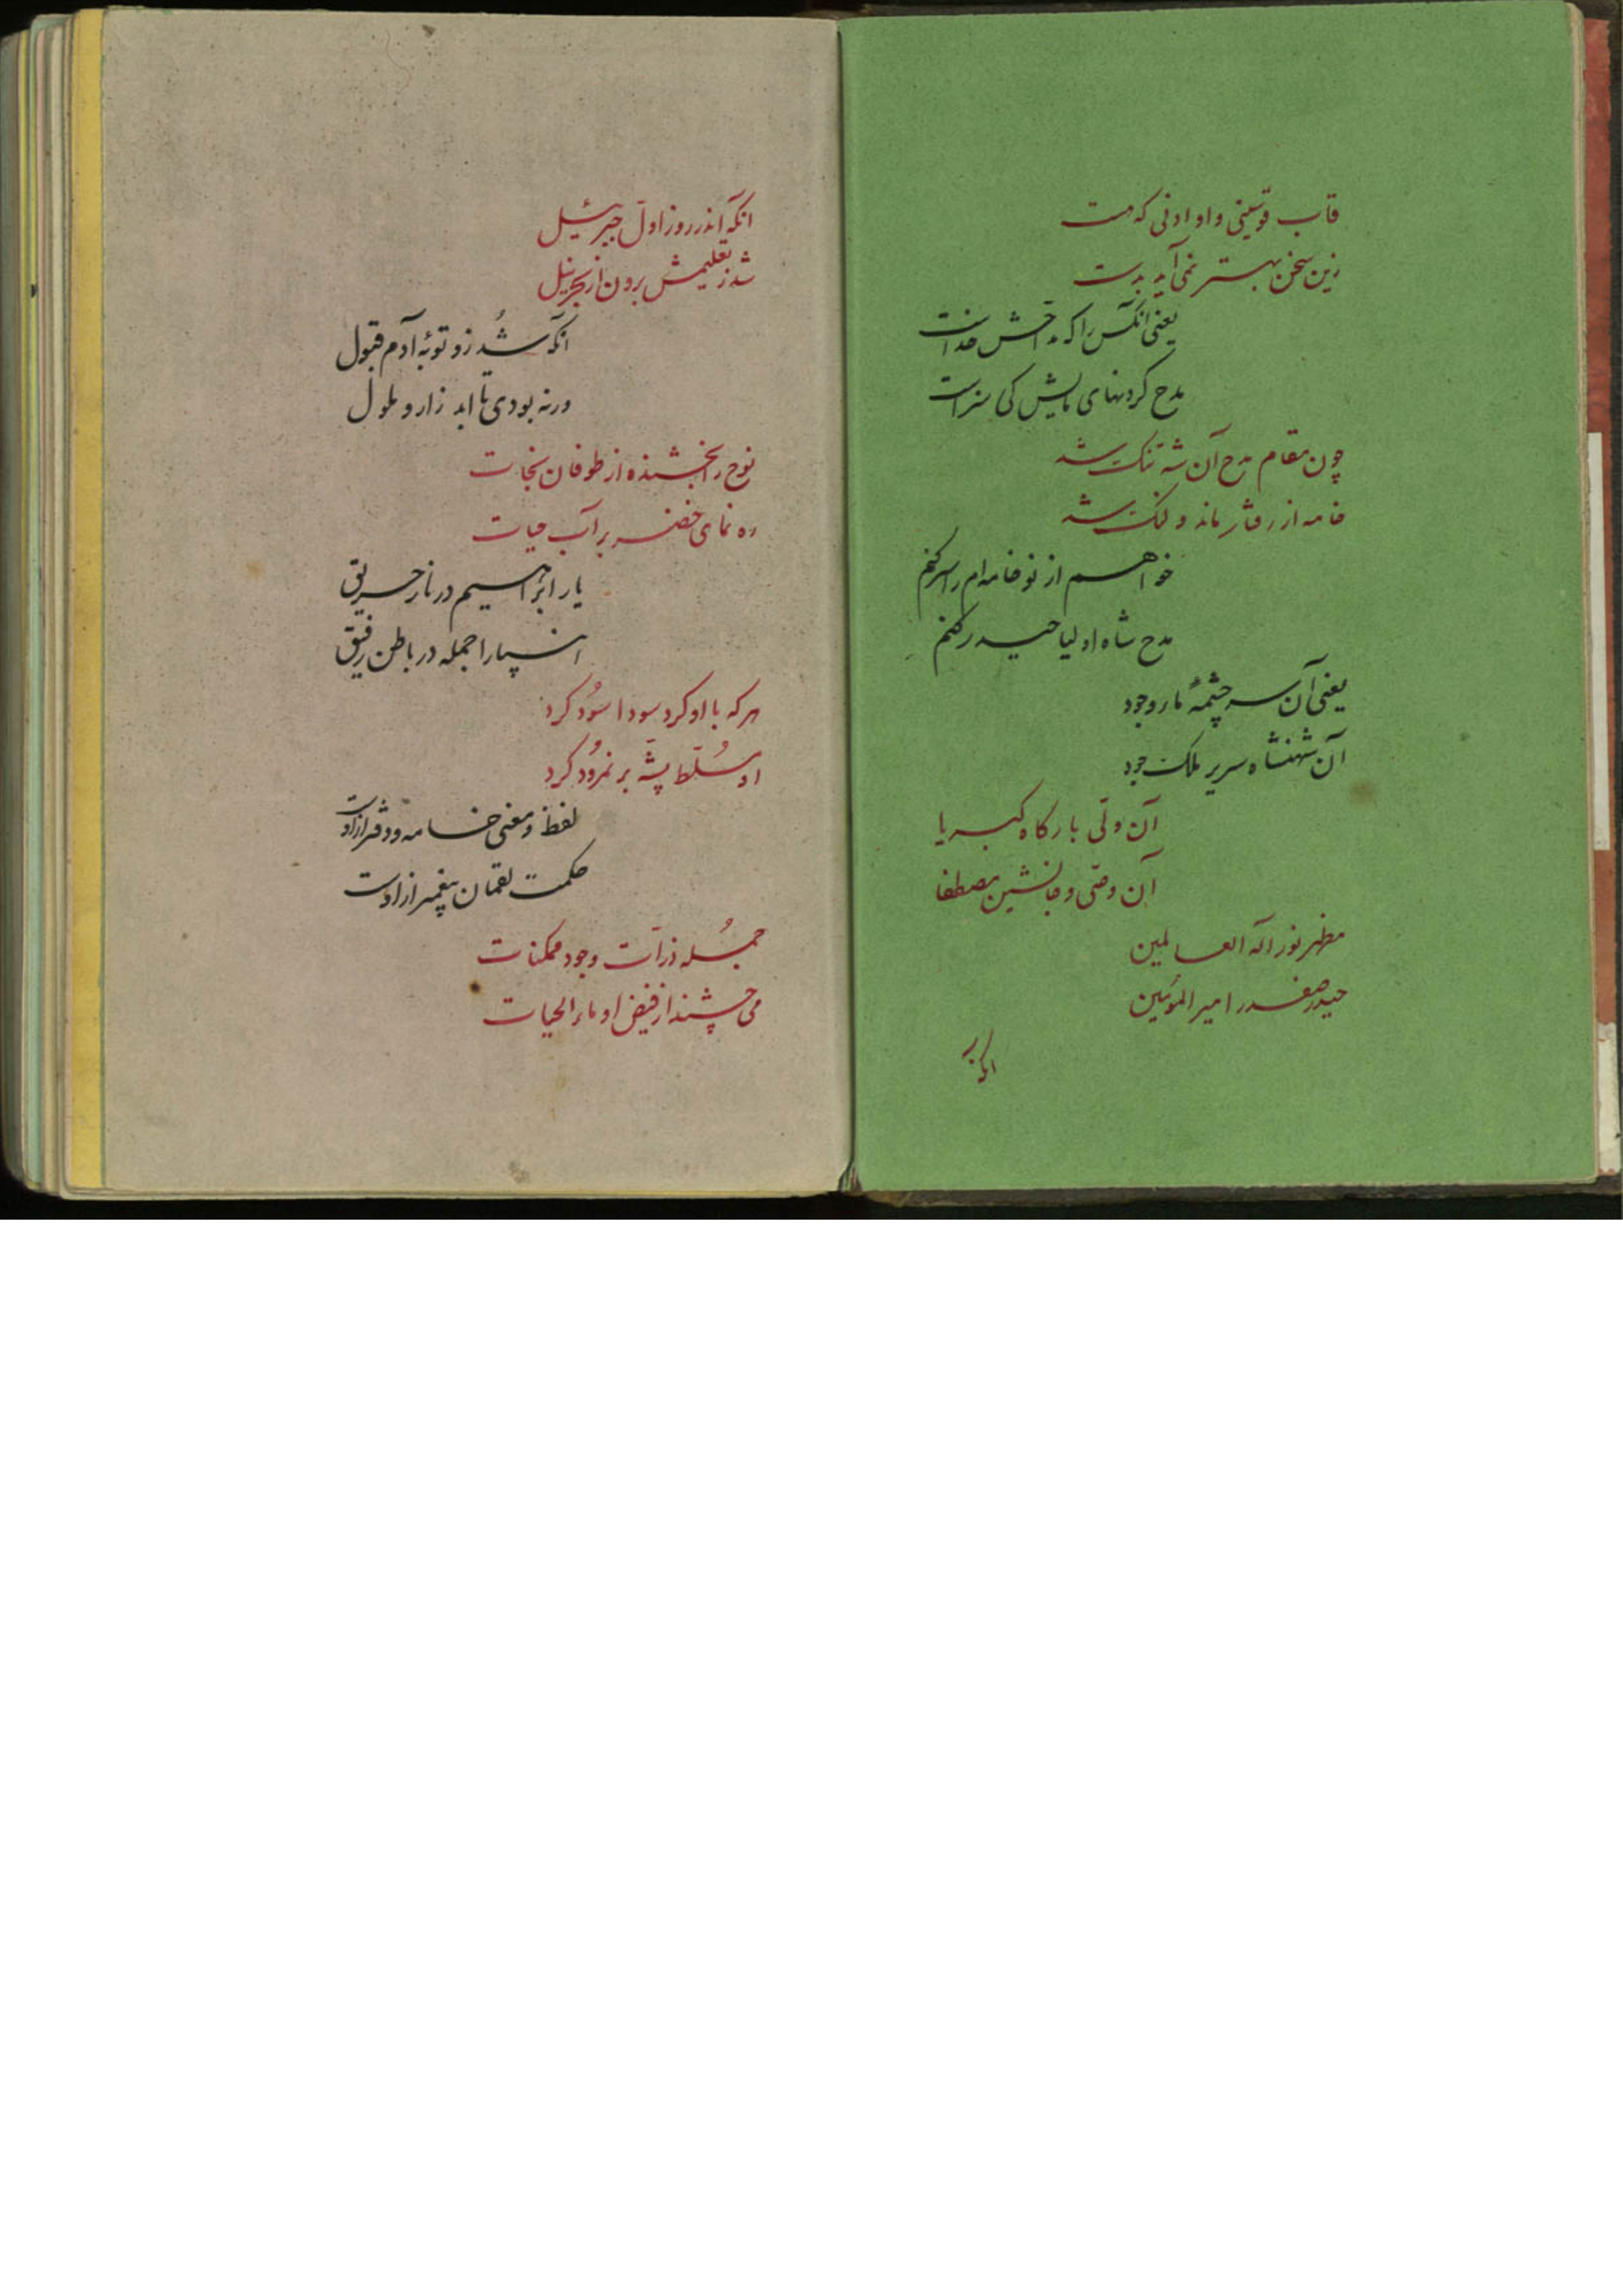 قاب قوسینی و او ادنی که هست
زین سخن بهتر نمی آید بدست
یعنی انکس را که مداحش خداست
مدح کردنهای مایش کی سزاست
چون مقام مدح آن شه تنک شد
خامه از رفتار ماند و لنک شد
خواهم از نو خامه ام را سر کنم
مدح شاه اولیا حیدر کنم
یعنی آن سر چشمهٔ مار وجود
آن شهنشاه سریر ملک جود
آن ولّی بارکاه کبریا
آن وصّی و جانشین مصطفا
مظهر نور اله العالمین
حیدر صفدر امیر المومنین
انکه
انکه اندر روز اوّل جبرئیل
شد ز تعلیمش برون از بحر نیل
انکه شُد زو توبهٔ آدم قبول
ورنه بودی تا ابد زار و ملول
نوح را بخشنده از طوفان نجات
ره نمای خضر بر آب حیات
یار ابراهیم در نار حریق
انبیا را جمله در باطن رفیق
هر که با او کرد سودا سُود کرد
او مُسلّط پشّه بر نمرُود کرد
لفظ و معنی خامه و دفتر ازاوست
حکمت لقمان پیغمبر ازاوست
جُمله ذرّات وجود ممکنات
می چشند از فیض او ماء الحیات